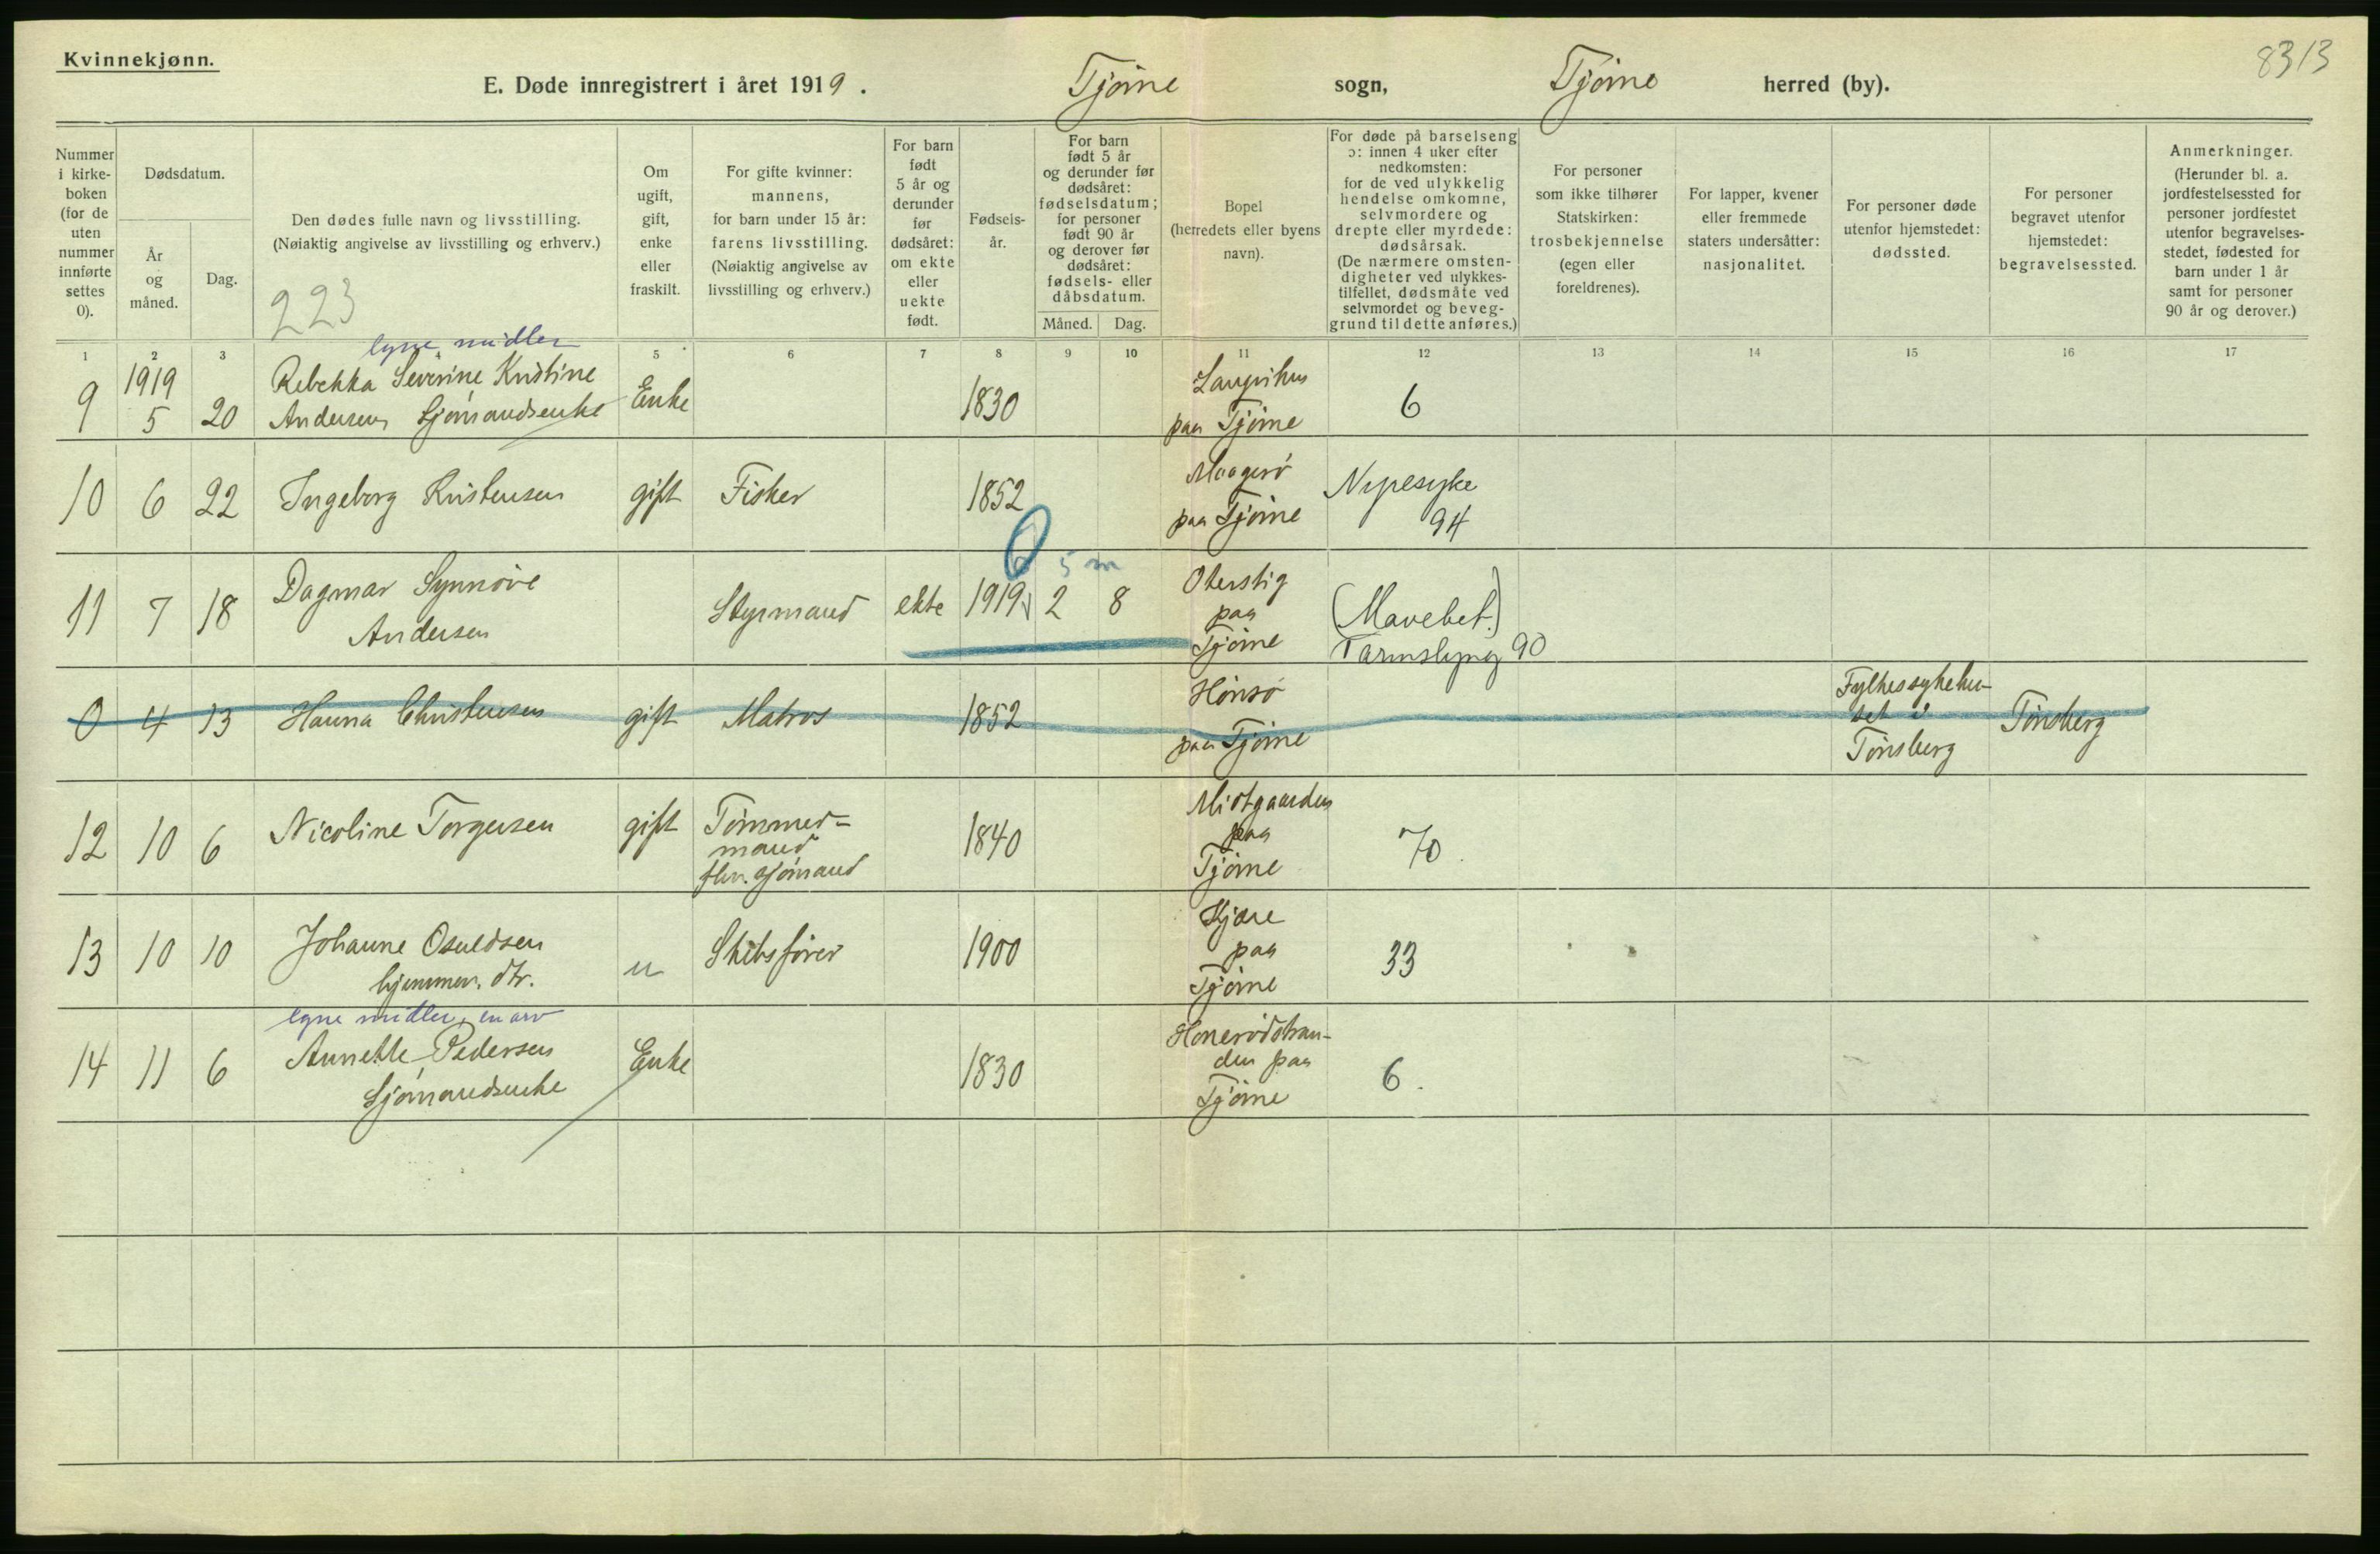 Kvinnekjønn.
8313
E. Døde innregistrert i året 1919. Tjøme sogn, Tjøme herred (by).
Nummer i kirkeboken (for de uten nummer innførte settes 0).
Dødsdatum.
År og måned.
Dag.
Den dødes fulle navn og livsstilling.
(Nøiaktig angivelse av livsstilling og erhverv.)
223
Om ugift, gift, enke eller fraskilt.
For gifte kvinner: mannens, for barn under 15 år: farens livsstilling. (Nøiaktig angivelse av livsstilling og erhverv.)
For barn født 5 år og derunder før dødsåret: om ekte eller uekte født.
Fødselsår.
For barn født 5 år og derunder før dødsåret: fødselsdatum; for personer født 90 år og derover før dødsåret: fødsels- eller dåbsdatum.
Måned. Dag.
Bopel (herredets eller byens navn).
For døde på barselseng ɔ: innen 4 uker efter nedkomsten: for de ved ulykkelig hendelse omkomne, selvmordere og drepte eller myrdede: dødsårsak. (De nærmere omstendigheter ved ulykkestilfellet, dødsmåte ved selvmordet og beveggrund til dette anføres.)
For personer som ikke tilhører Statskirken: trosbekjennelse (egen eller foreldrenes).
For lapper, kvener eller fremmede staters undersåtter: nasjonalitet.
For personer døde utenfor hjemstedet: dødssted.
For personer begravet utenfor hjemstedet: begravelsessted.
Anmerkninger. (Herunder bl. a. jordfestelsessted for personer jordfestet utenfor begravelsesstedet, fødested for barn under 1 år samt for personer 90 år og derover.)
1 2 3 4 5 6 7 8 9 10 11 12 13 14 15 16 17
egne midler
9 1919 5 20 Rebekka Severine Kristine Andersen Sjømandsenke Enke 1830 paa Tjøme 6
10 6 22 Ingeborg Kristensen gift Fisker 1852 Maagerø paa Tjøme Nyresyke 94
0 5 m
11 7 18 Dagmar Synnøve Andersen Styrmand ekte 1919 2 8 Oterstig paa Tjøme (Mavebet.) Tarmslyng 90
0 4 13 Hanna Christensen gift Matros 1852 Hønsø paa Tjøme Fylkessykehuset i Tønsberg Tønsberg
12 10 6 Nicoline Torgersen gift Tømmermand fhv. sjømand 1840 Midtgaarden paa Tjøme 70
13 10 10 Johanne Osuldsen hjemmev. dtr. u Skibsfører 1900 Kjære paa Tjøme 33
egne midler, en arv
14 11 6 Annette Pedersen Sjømandsenke Enke 1830 Honerødstranden paa Tjøme 6.